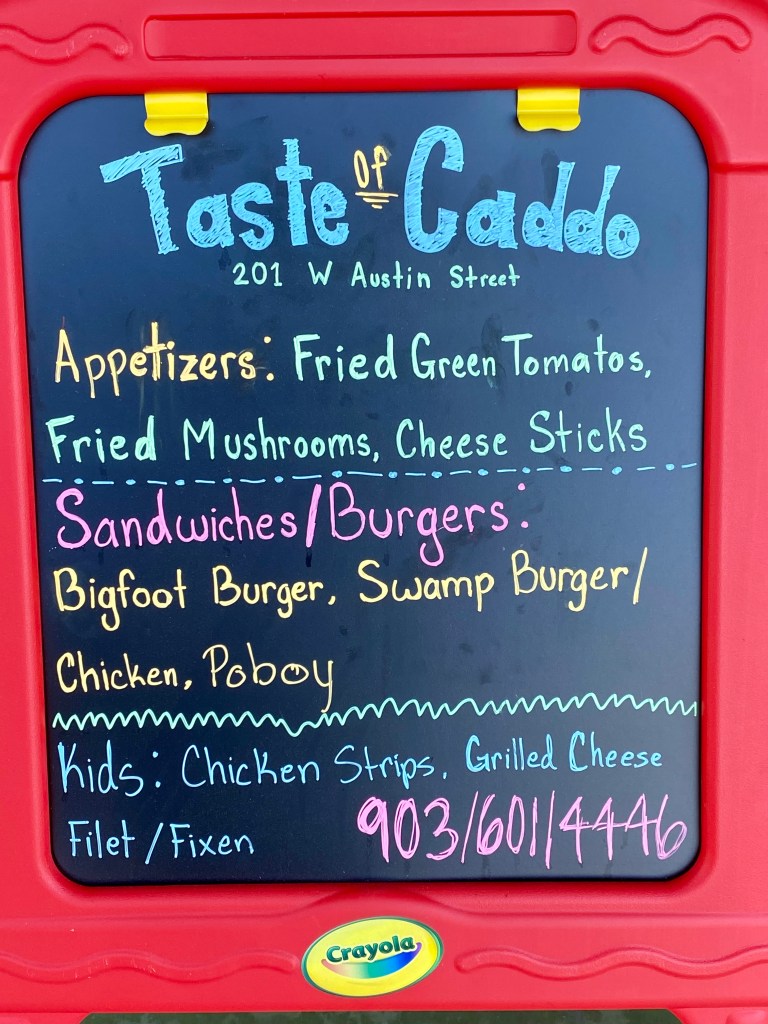 Taste of Caddo
201 W Austin Street
Appetizers: Fried Green Tomatos,
Fried Mushrooms, Cheese Sticks
Sandwiches/Burgers:
Bigfoot Burger, Swamp Burger/
Chicken, Poboy
Kids: Chicken Strips, Grilled Cheese
Filet/Fixen 903/601/4446
Crayola